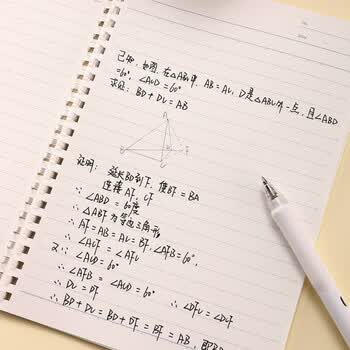 已知,如图,在△ABC中,AB=AC,D是△ABC外一点,且∠ABD
=60°,∠ACD=60°
求证:BD+DC=AB
A
B
证明:延长BD到F,使BF=BA
连接AF,CF
∵∠ABD=60度
∴△ABF为等边三角形
∴AF=AB=AC=BF,∠AFB=60°,
∴∠ACF=∠AFC
又∵∠ACD=60°
∴∠AFB=∠ACD=60°
∴∠DFC=∠DCF
∴DC=DF
∴BD+DC=BD+DF=BF=AB,